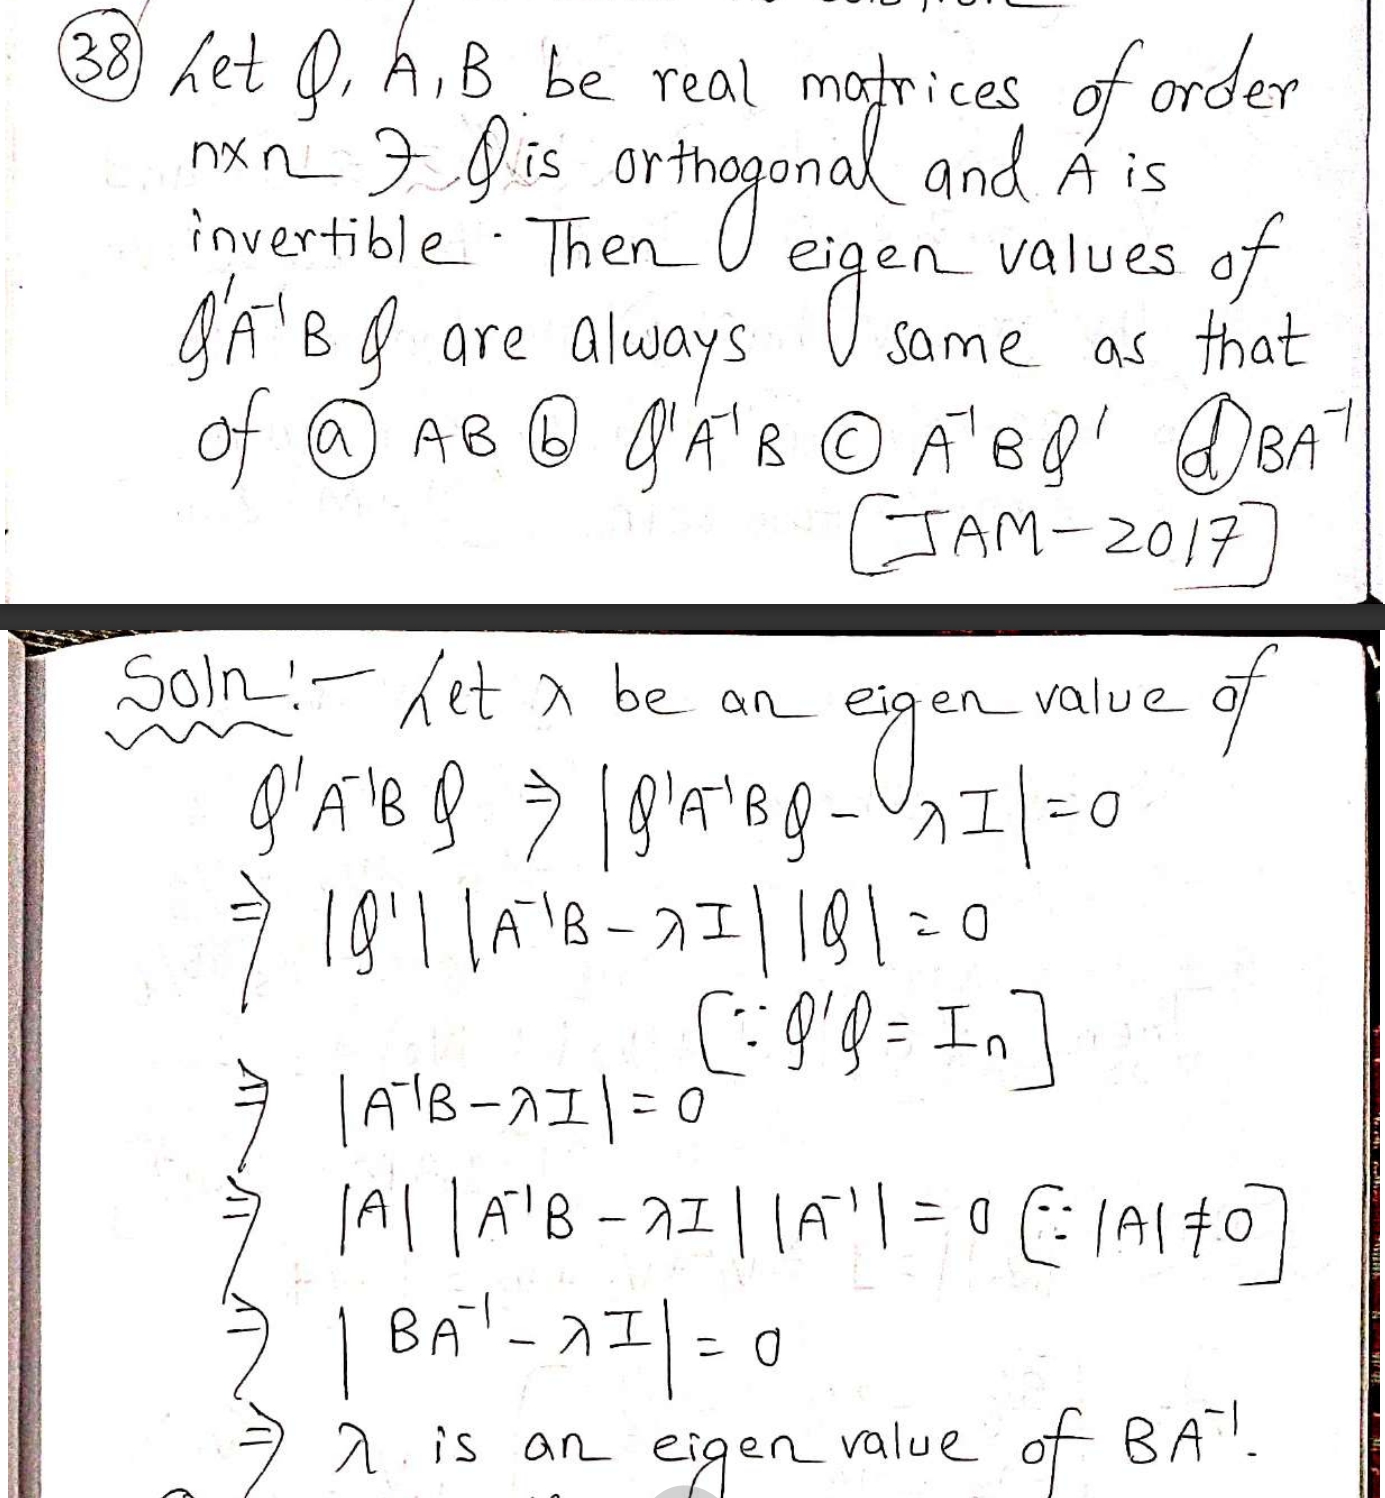 38 Let Q, A, B be real matrices of order
n×n ∋ Q is orthogonal and A is
invertible. Then eigen values of
Q'A⁻¹BQ are always same as that
of ⓐ AB ⓑ Q'A⁻¹B ⓒ A⁻¹BQ' ⓓ BA⁻¹
[JAM-2017]
Soln:- Let λ be an eigen value of
Q'A⁻¹BQ ⇒ |Q'A⁻¹BQ - λI| = 0
⇒ |Q'| |A⁻¹B - λI| |Q| = 0
[∵ Q'Q = Iₙ]
⇒ |A⁻¹B - λI| = 0
⇒ |A| |A⁻¹B - λI| |A⁻¹| = 0 [∵ |A| ≠ 0]
⇒ |BA⁻¹ - λI| = 0
⇒ λ is an eigen value of BA⁻¹.